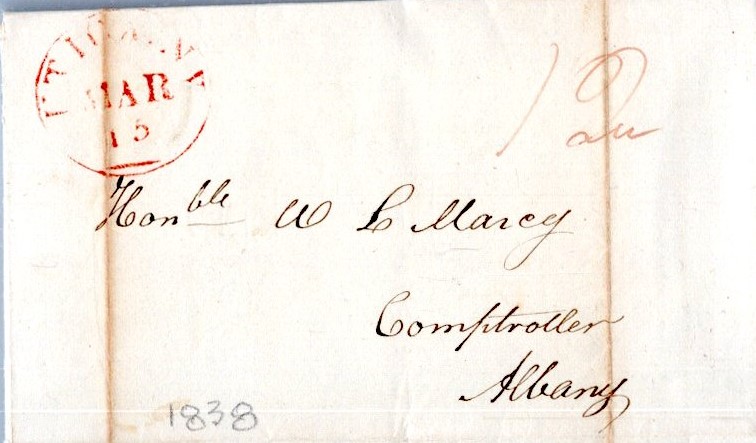 UTICA N.Y
MAR
15
12½
Honble W L Marcy
Comptroller
Albany
1838